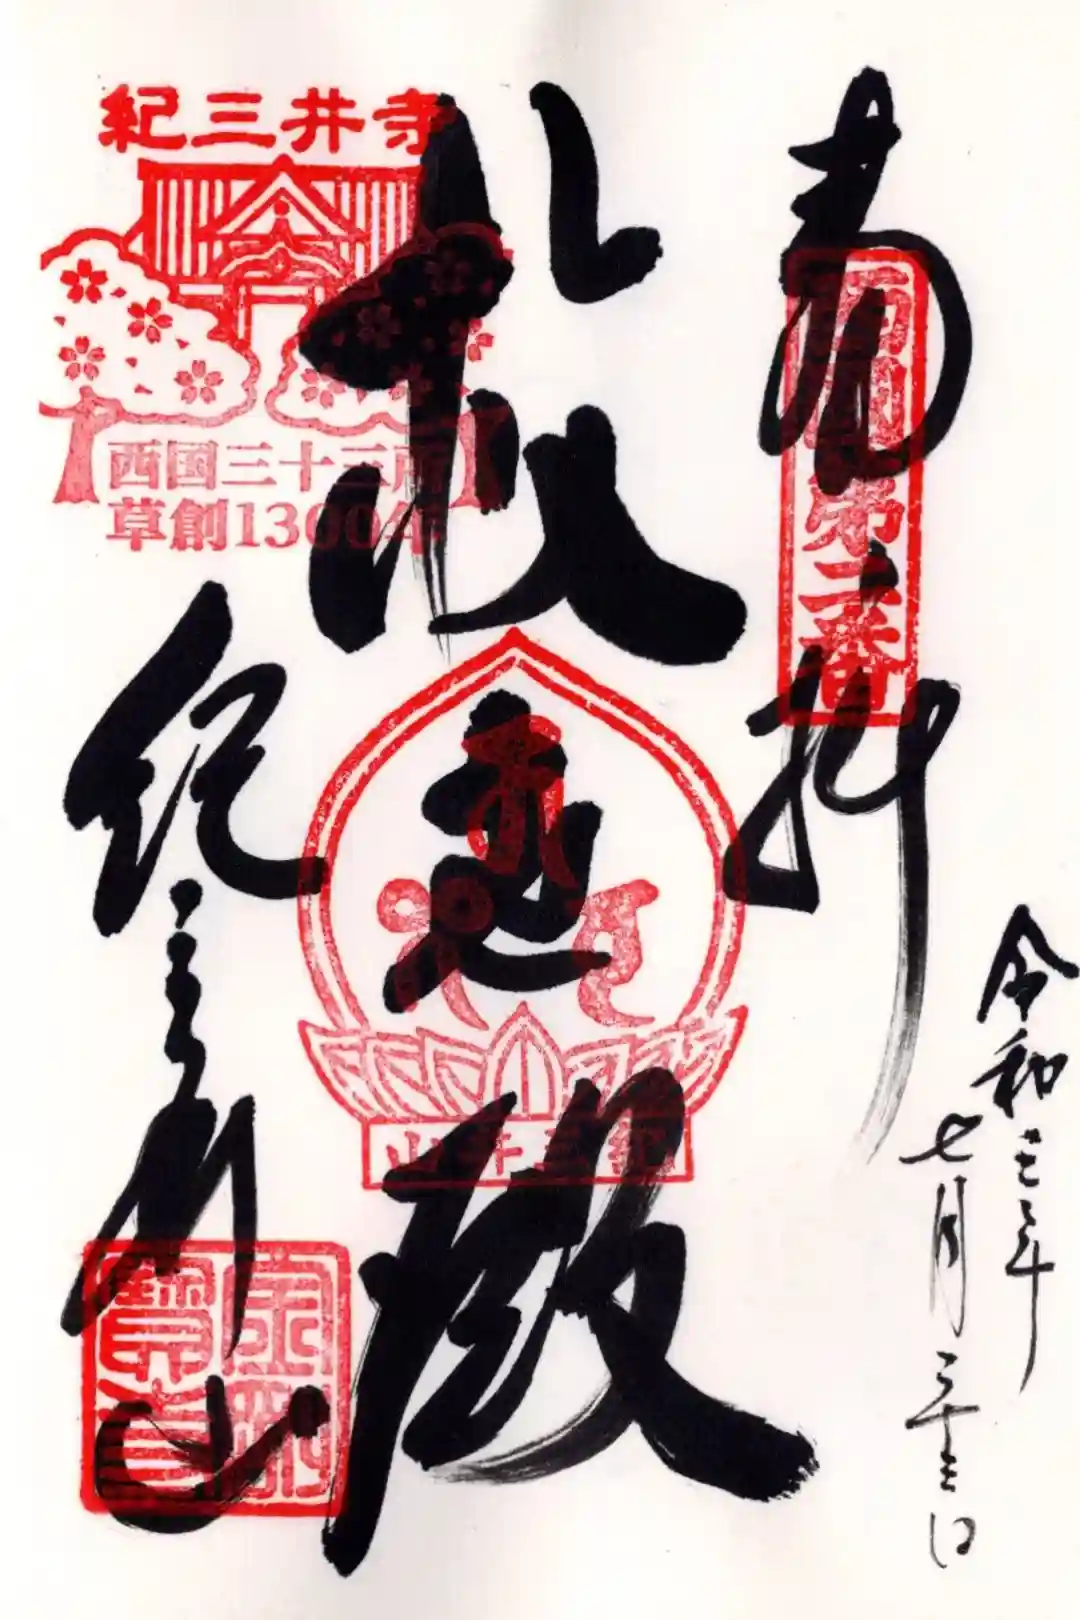 奉拝
西国第二番
令和三年
七月二十三日
救世殿
紀三井山
紀三井山
紀三井寺
西国三十三所
草創1300年
金剛寳寺